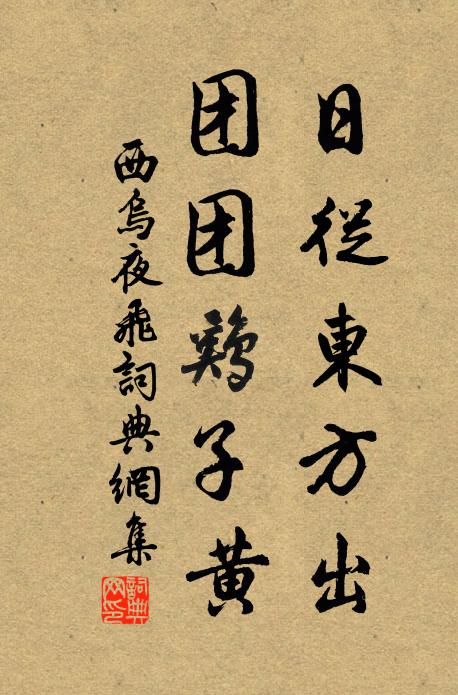 日從東方出
团团鷄子黄
西烏夜飛詞典網集
詞典網印